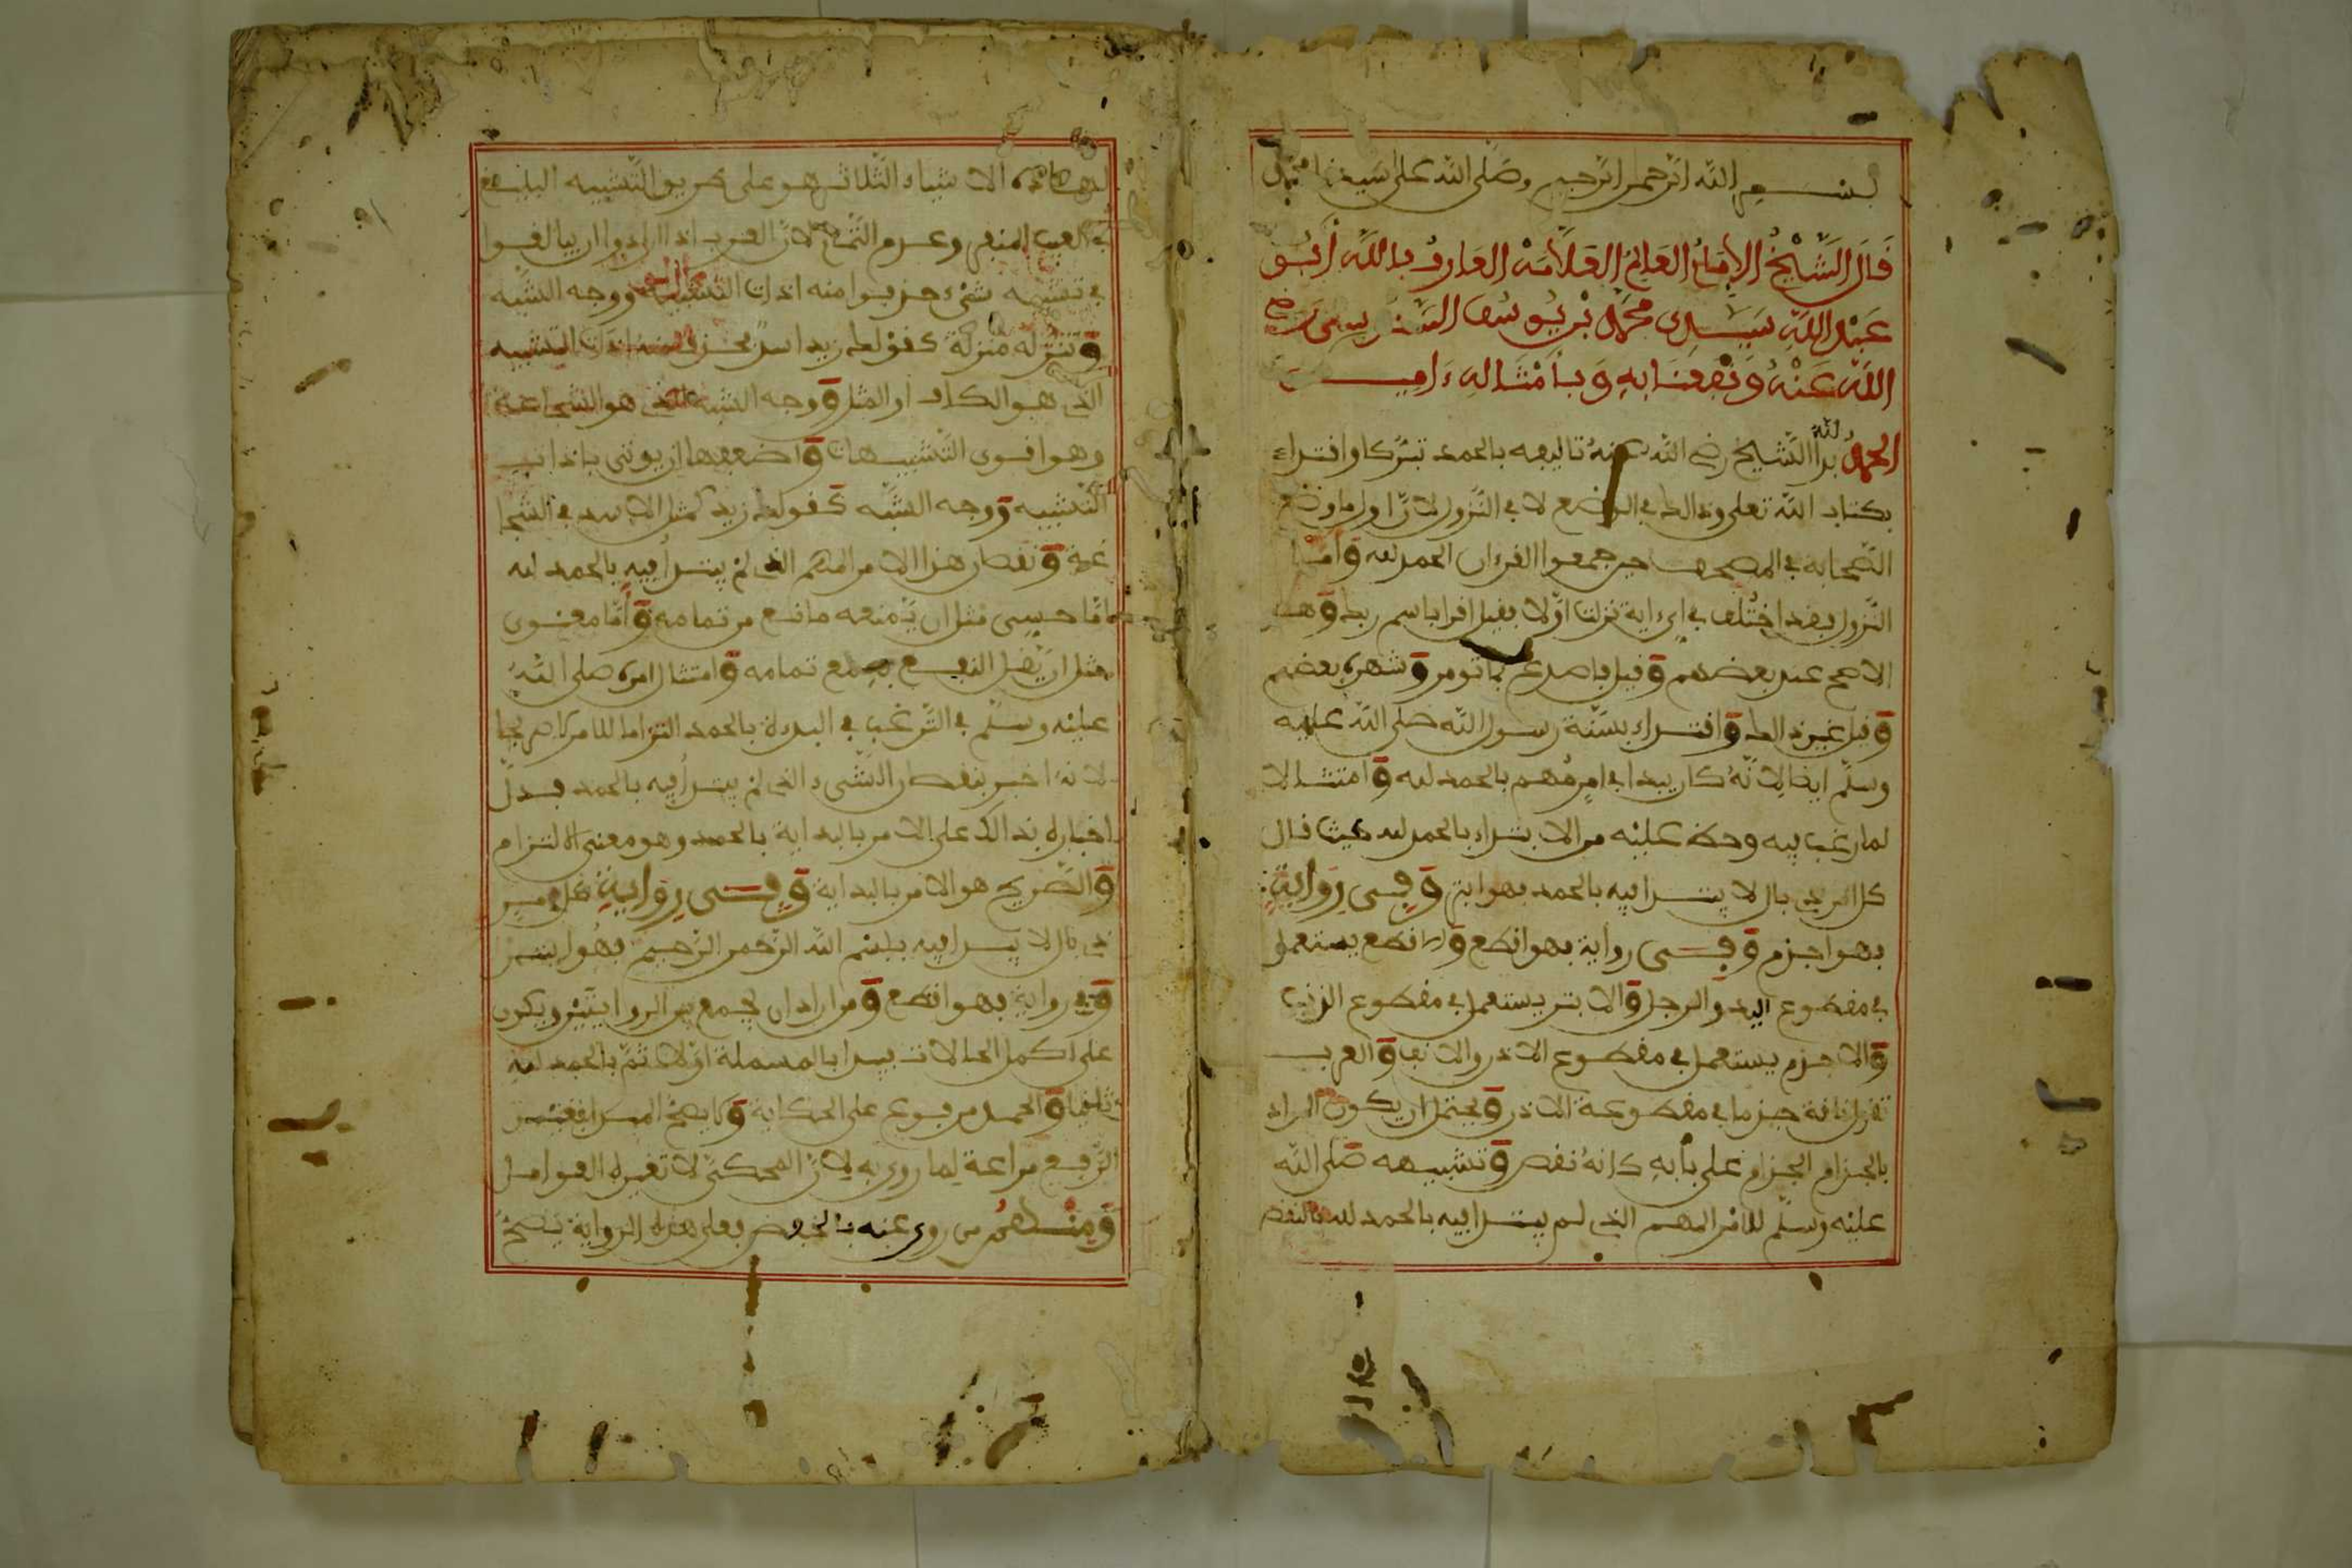 بسم الله الرحمن الرحيم وصلى الله على سيدنا محمد
قال الشيخ الإمام العالم العلامة العارف بالله أبو
عبد الله سيدي محمد بن يوسف السنوسي رضي
الله عنه ونفعنا به وبأمثاله ءامين
الحمد لله بدأ الشيخ رضي الله عنه تاليفه بالحمد تبركا واقتداء
بكتاب الله تعلى وذالك في الوضع لا في النزول لان اول ما وضع
الصحابة في المصحف حين جمعوا القرءان الحمد لله واما
النزول فقد اختلف في اي ءاية نزلت اولا فقيل اقرا باسم ربك وهو
الاصح عند بعضهم وقيل فاصدع بما تومر وشهره بعضهم
وقيل غير ذالك واقتداء بسنة رسول الله صلى الله عليه
وسلم ايضا لانه كان يبدا في امر مهم بالحمد لله وامتثالا
لما رغب فيه وحض عليه من الابتداء بالحمد لله حيث قال
كل امر ذي بال لا يبتدا فيه بالحمد فهو ابتر وفي رواية
فهو اجذم وفي رواية فهو اقطع والاقطع يستعمل
في مقطوع اليد والرجل والابتر يستعمل في مقطوع الذنب
والاجذم يستعمل في مقطوع الاذن والانف والعرب
تقول ناقة جذما في مقطوعة الاذن ويحتمل ان يكون المراد
بالجذام الجذام على بابه كانه نقص وتشبيهه صلى الله
عليه وسلم للامر المهم الذي لم يبتدا فيه بالحمد لله بالنقص
بهاذه الاشياء الثلاث هو على طريق التشبيه البليغ
في العيب المنفر وعدم التمام لان العرب اذا ارادوا ان يبالغوا
في تشبيه شيء حذفوا منه اداة التشبيه ووجه الشبه
وتنزله منزلة كقولك زيد اسد فحذف منه اداة التشبيه
الذي هو الكاف او المثل ووجه الشبه الذي هو الشجاعة
وهو اقوى التشبيهات واضعفها ان يوتى باداة
التشبيه ووجه الشبه كقولك زيد كمثل الاسد في الشجا
عة ونقصان هذا الامر المهم الذي لم يبتدا فيه بالحمد لله
اما حسي مثل ان يمنعه مانع من تمامه واما معنوي
مثل ان يقل النفع به مع تمامه وامتثال امره صلى الله
عليه وسلم في الترغيب في البداة بالحمد التزاما للامر لا صريحا
لانه اخبر بنقصان الشيء الذي لم يبتدا فيه بالحمد فدل
اخباره بذالك على الامر بالبداية بالحمد وهو معنى الالتزام
والصريح هو الامر بالبداية وفي رواية كل امر
ذي بال لا يبتدا فيه ببسم الله الرحمن الرحيم فهو ابتر
وفي رواية فهو اقطع ومن اراد ان يجمع بين الروايتين ويكون
على اكمل الحالات فيبدا بالبسملة اولا ثم بالحمد لله
ثانيا والحمد مرفوع على الحكاية ولا يصح
الرفع مراعة لما روي به لان المحكي لا تغيره العوامل
ومنهم من روى عنه بالخفض فعلى هذه الرواية يصح